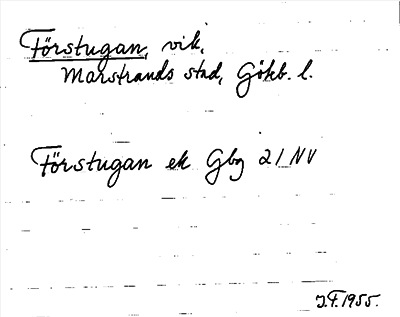 Förstugan, vik,
Marstrands stad, Göteb. l.
Förstugan ek Gbg 21 NV
J.F. 1955.